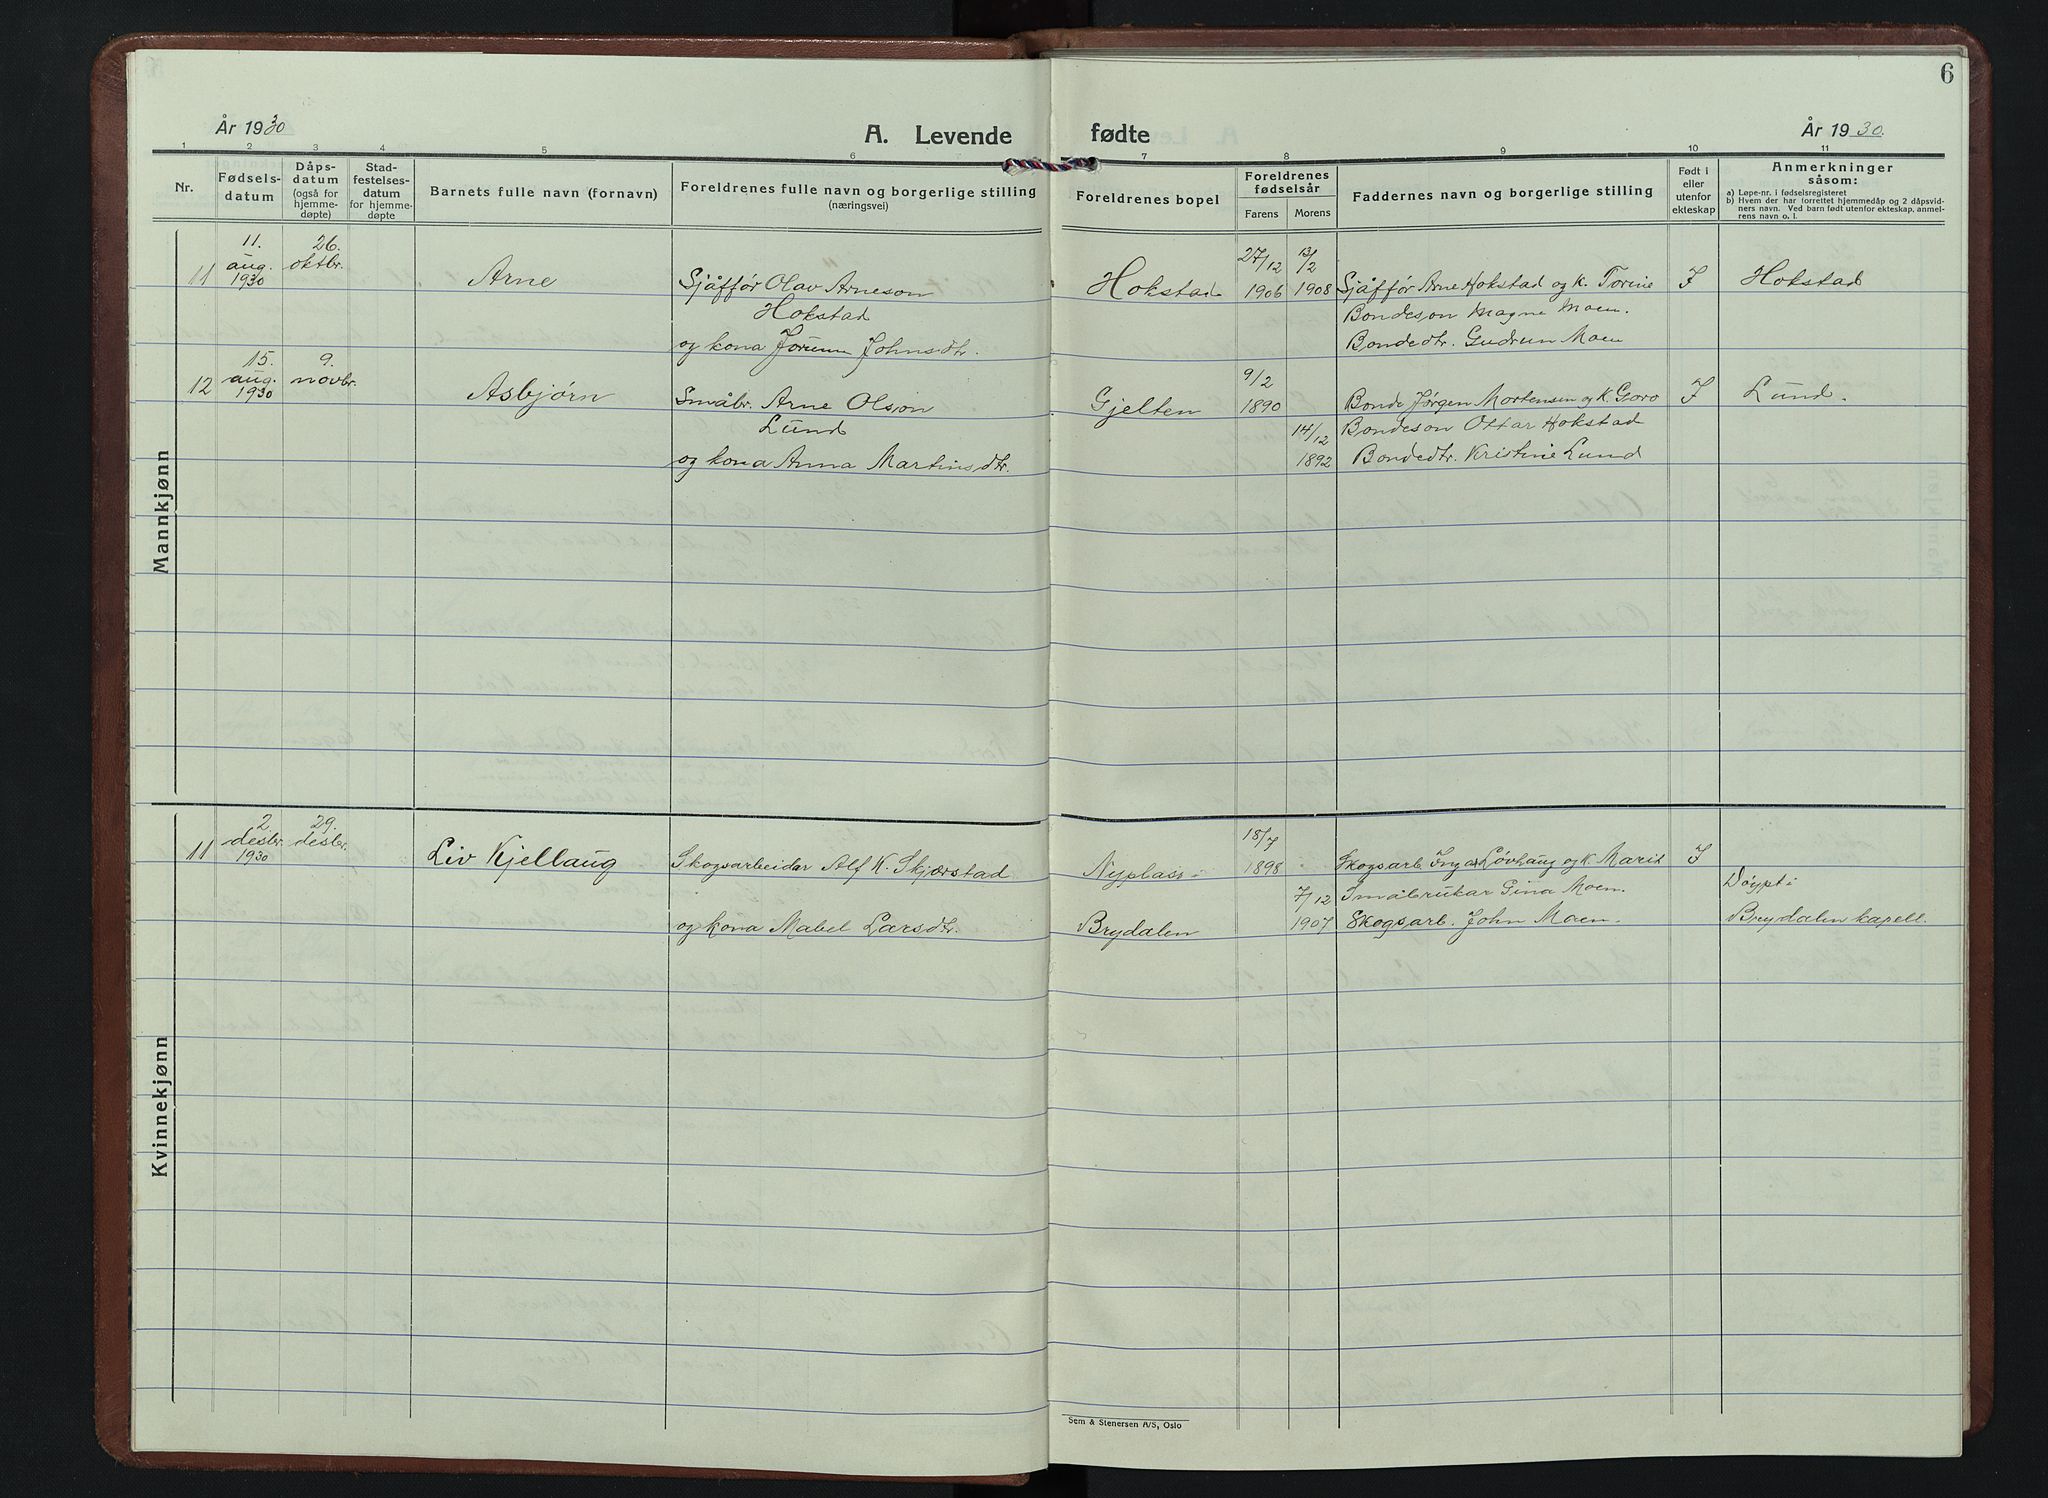 6
År 1930
A. Levende fødte
År 1930.
1 2 3 4 5 6 7 8 9 10 11
Nr.
Fødsels-
datum
Dåps-
datum
(også for
hjemme-
døpte)
Stad-
festelses-
datum
for hjemme-
døpte
Barnets fulle navn (fornavn)
Foreldrenes fulle navn og borgerlige stilling
(næringsvei)
Foreldrenes bopel
Foreldrenes
fødselsår
Farens
Morens
Faddernes navn og borgerlige stilling
Født i
eller
utenfor
ekteskap
Anmerkninger
såsom:
a) Løpe-nr. i fødselsregisteret
b) Hvem der har forrettet hjemmedåp og 2 dåpsvid-
ners navn. Ved barn født utenfor ekteskap, anmel-
rens navn o. l.
Mannkjønn
11
11.
aug.
1930
26.
oktbr.
Arne
Sjåffør Olav Arneson
Hokstad
og kona Jorunn Johnsdtr.
Hokstad
27/12
1906
13/2
1908
Sjåffør Arne Hokstad og k. Torine
Bondeson Magne Moen.
Bondedtr. Gudrun Moen
J
Hokstad
12
15.
aug.
1930
9.
novbr.
Asbjørn
Småbr. Arne Olson
Lund
og kona Anna Martinsdtr.
Gjelten
9/2
1890
14/12
1892
Bonde Jørgen Mortensen og k. Goro
Bondeson Ottar Hokstad
Bondedtr. Kristine Lund
J
Lund.
Kvinnekjønn
11
2.
desbr.
1930
29.
desbr.
Liv Kjellaug
Skogsarbeidar Alf K. Skjærstad
og kona Mabel Larsdtr.
Nyplass i
Brydalen
18/7
1898
7/12
1907
Skogsarb. Løvhaug og k. Marit
Småbrukar Gina Moen.
Skogsarb. John Moen.
J
Døypt i
Brydalen kapell.
Sem & Stenersen A/S, Oslo